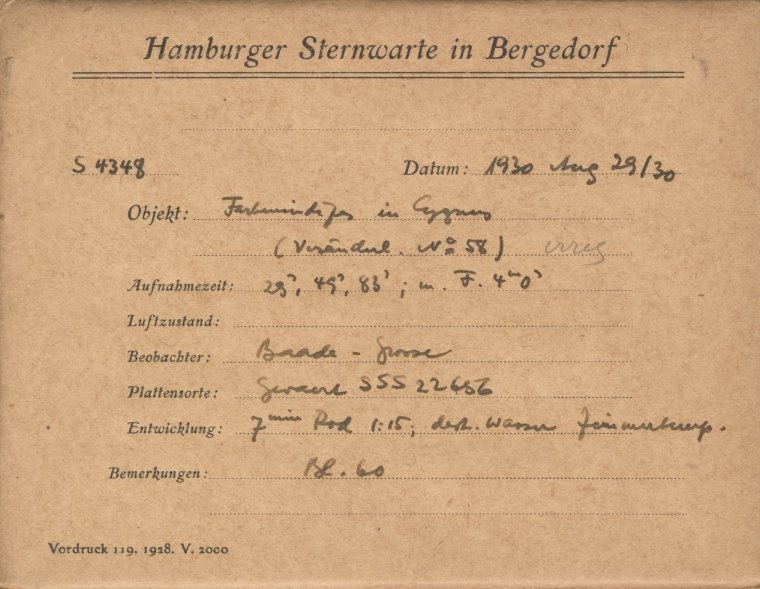 Hamburger Sternwarte in Bergedorf
S 4348 Datum: 1930 Aug 29/30
Objekt: Farbenindizes in Cygnus
(Veränderl. No 58) irreg
Aufnahmezeit: 29s, 49s, 83s; m. F. 4m0s
Luftzustand:
Beobachter: Baade -
Plattensorte: Gevaert SSS 22656
Entwicklung: 7min Rod 1:15; dest. Wasser Zimmertemp.
Bemerkungen: Bl. 60
Vordruck 119. 1928. V. 2000